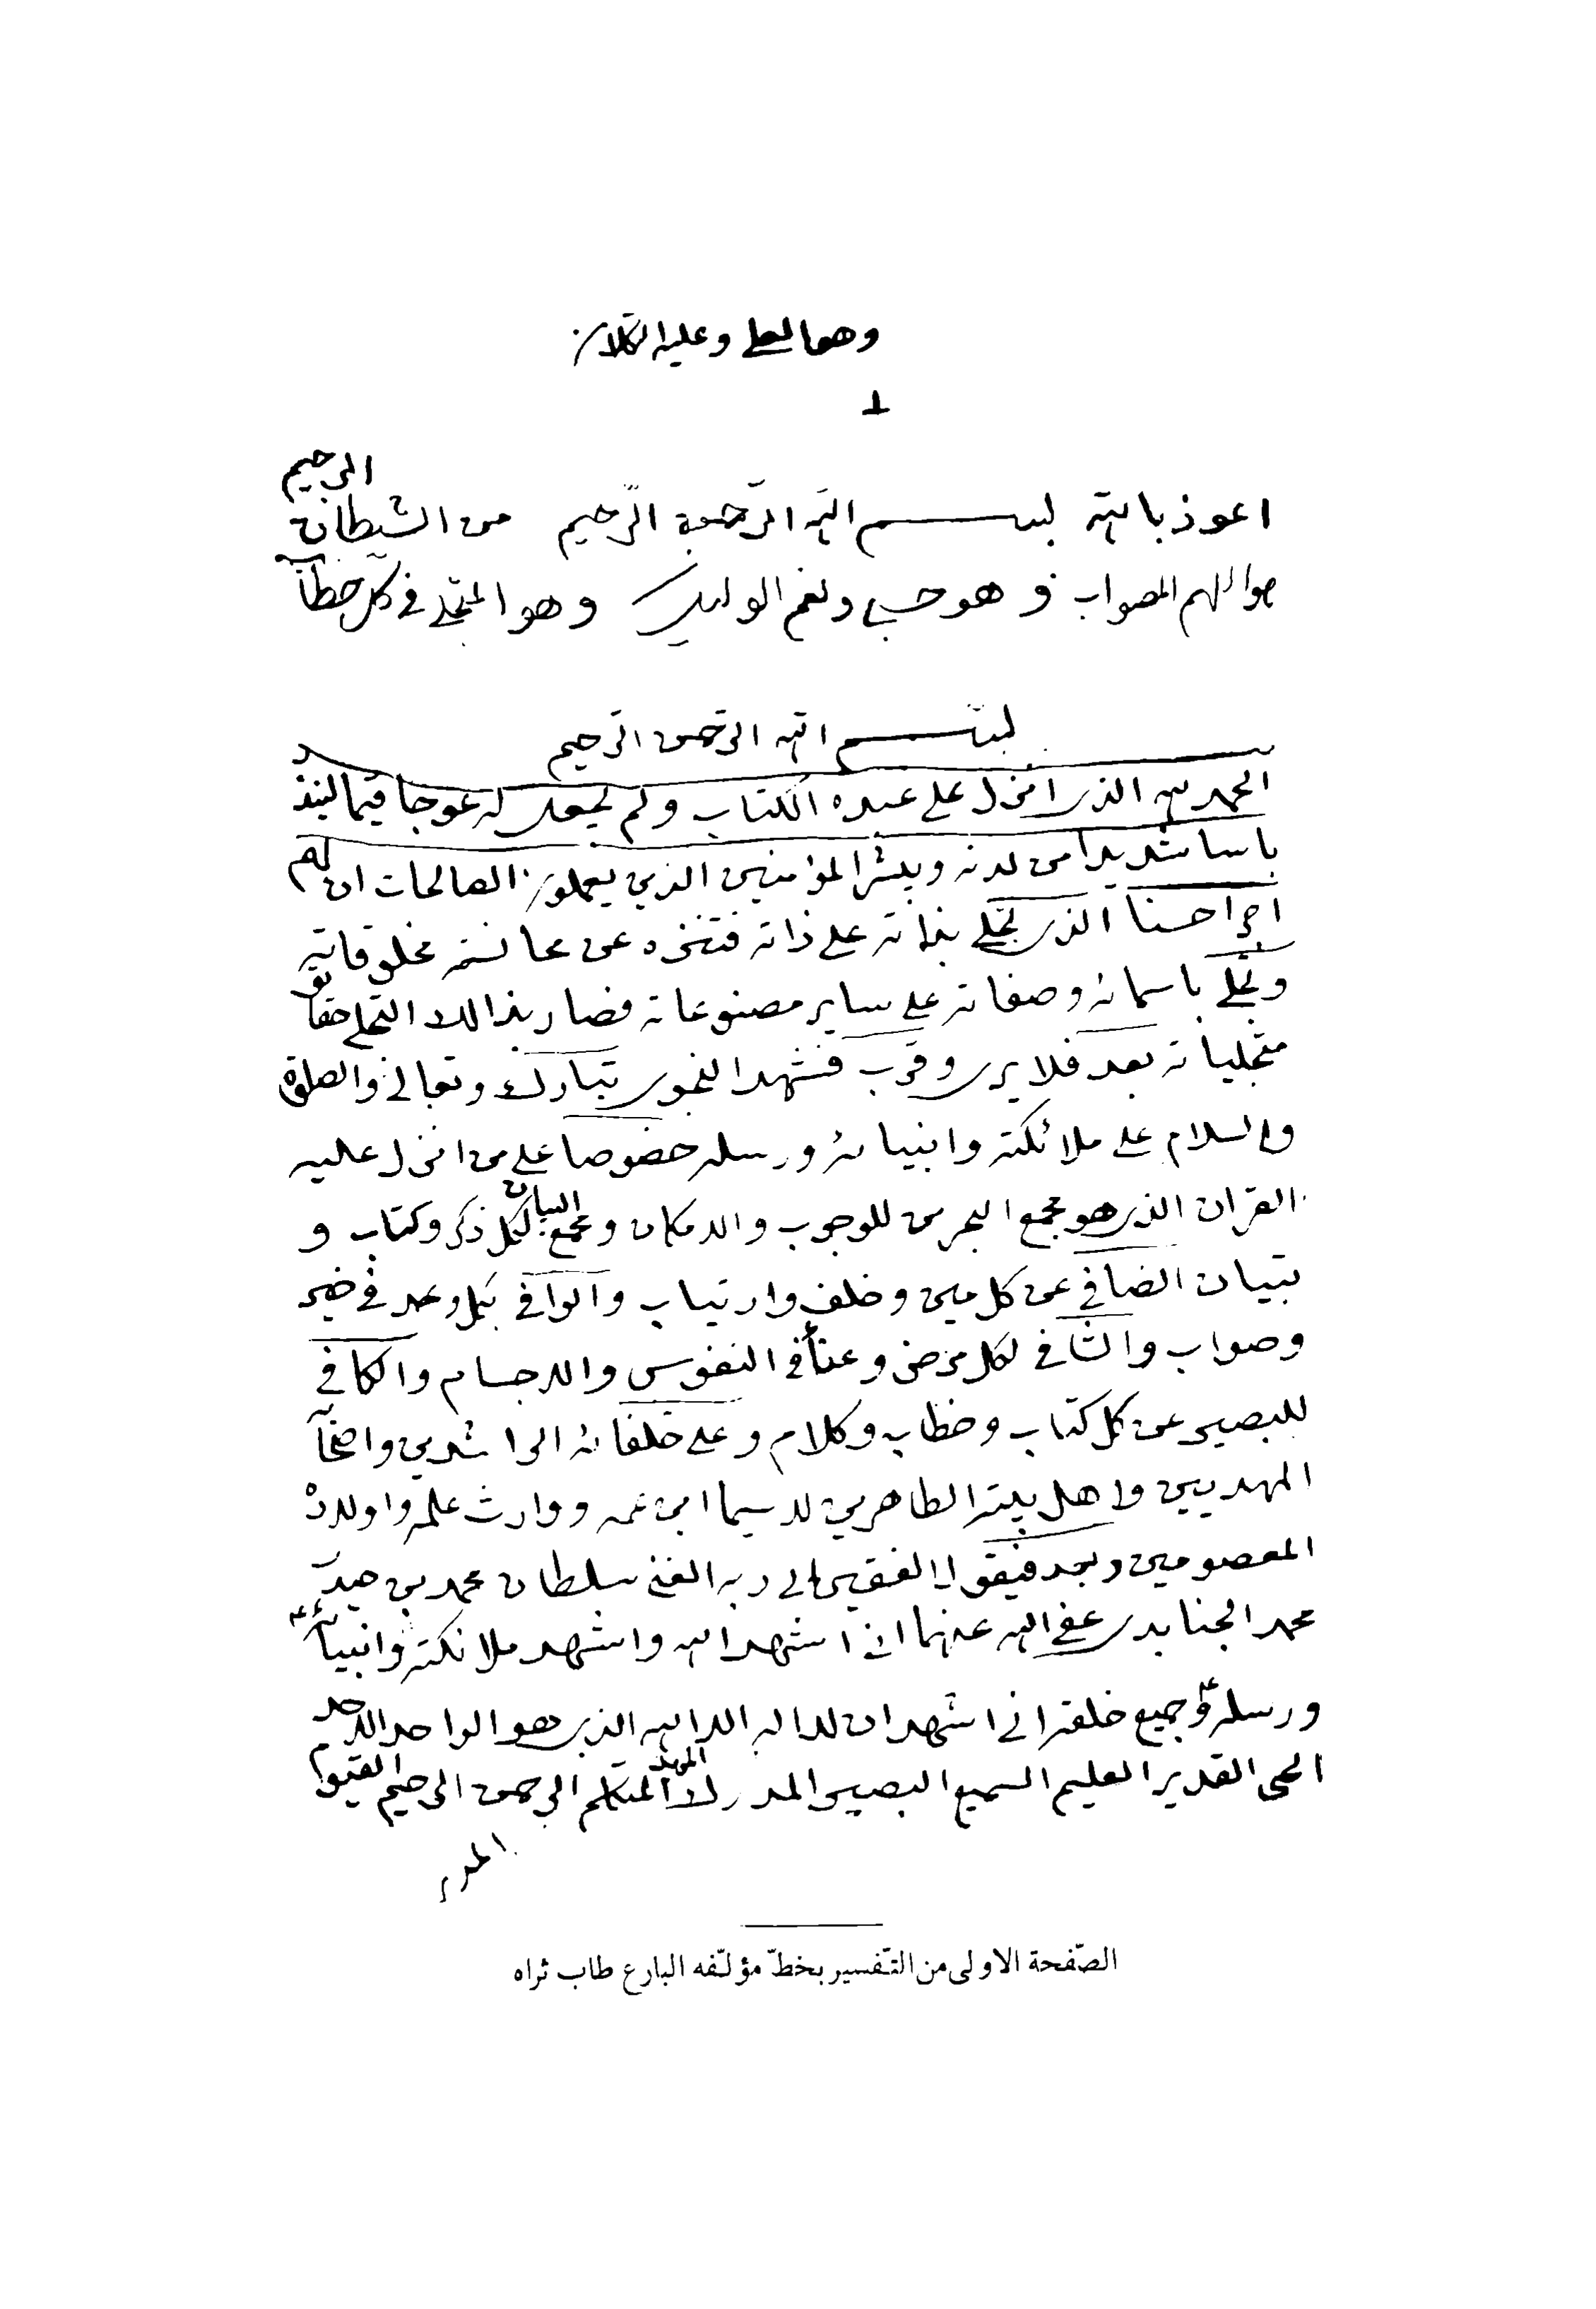 وهو العلی وعلیه التکلان
١
الرحیم
اعوذ بالله بسم الله الرّحمن الرّحیم من الشیطان
هو الملهم للصواب و هو حسبی ونعم الوکیل وهو المتجلّی فی کل خطاب
بسم الله الرّحمن الرّحیم
الحمد لله الذی انزل علی عبده الکتاب ولم یجعل له عوجا قیّما لینذر
باسا شدیدا من لدنه ویبشر المؤمنین الذین یعملون الصالحات ان لهم
اجرا حسنا الذی تجلّی بذاته علی ذاته فتنزه عن مجانسة مخلوقاته
وتجلّی باسمائه وصفاته علی سایر مصنوعاته فصار بذالك التجلی حقایق
متجلیاته بعد فلا یری وقرب فشهد النجوی تبارك وتعالی والصلوة
والسلام علی ملائکته وانبیائه ورسله خصوصا علی من انزل علیه
القران الذی هو مجمع البحرین للوجوب والامکان ومجمع البیان لکل ذکر وکتاب و
تبیان الصافی عن کل مین وخلف وارتیاب والوافی بکل وعد فی خیر
وصواب والشافی لکل مرض وعناء فی النفوس والاجسام والکافی
للبصیر عن کل کتاب وخطاب وکلام وعلی خلفائه الراشدین واصحابه
المهدیین واهل بیته الطاهرین لاسیما ابن عمه ووارث علمه واولاده
المعصومین وبعد فیقول الفقیر الی ربه الغنی سلطان محمد بن حیدر
محمد الجنابدی عفی الله عنهما انی اشهد الله واشهد ملائکته وانبیائه
ورسله وجمیع خلقه انی اشهد ان لا اله الا الله الذی هو الواحد الاحد
الحی القدیر العلیم السمیع البصیر المدرك المتکلم الرحمن الرحیم القیوم
المرید
الصّفحة الاولی من التّفسیر بخطّ مؤلّفه البارع طاب ثراه